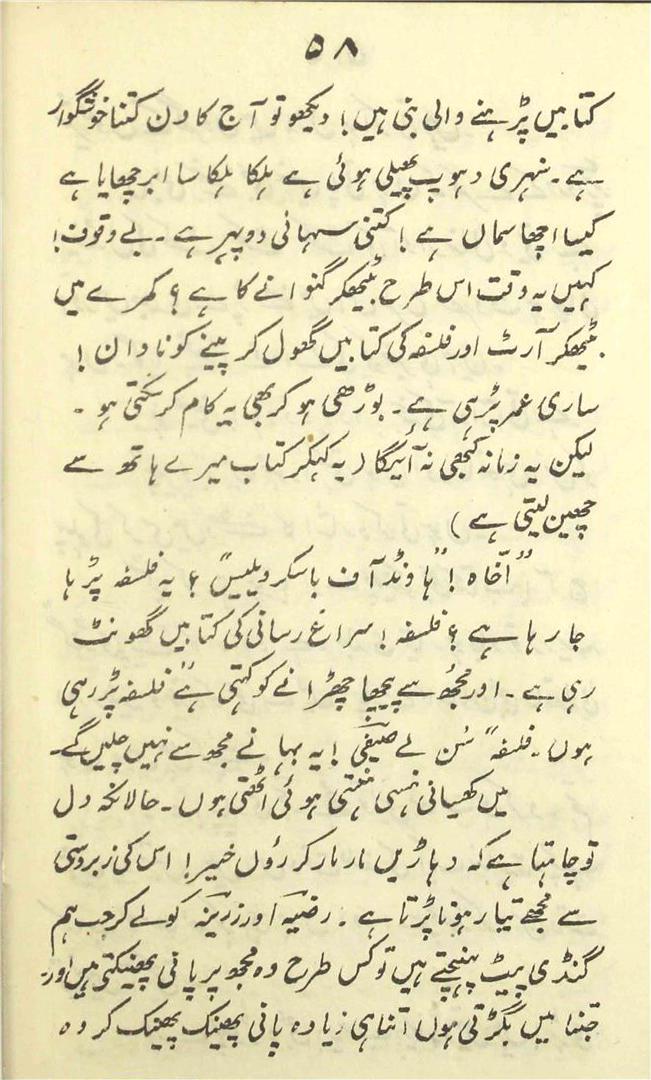 ۵۸
کتابیں پڑہنے والی بنی ہیں! دیکھو تو آج کا دن کتنا خوشگوار
ہے۔ سنہری دہوپ پھیلی ہوئی ہے ہلکا ہلکا سا ابر چھایا ہے
کیسا اچھا سماں ہے! کتنی سہانی دوپہر ہے۔ بے وقوف!
کہیں یہ وقت اس طرح بیٹھکر گنوانے کا ہے؟ کمرے میں
بیٹھکر آرٹ اور فلسفہ کی کتابیں گھول کر پینے کو نادان!
ساری عمر پڑہی ہے۔ بوڑھی ہو کر بھی یہ کام کر سکتی ہو۔
لیکن یہ زمانہ کبھی نہ آئیگا (یہ کہکر کتاب میرے ہاتھ سے
چھین لیتی ہے)
"اخّاہ! "ہاونڈ آف باسکرویلیس"؟ یہ فلسفہ پڑہا
جا رہا ہے؟ فلسفہ! سراغ رسانی کی کتابیں گھونٹ
رہی ہے۔ اور مجھ سے پیچھا چھڑانے کو کہتی ہے "فلسفہ پڑ رہی
ہوں۔ فلسفہ" سُن لے صیفی! یہ بہانے مجھ سے نہیں چلیں گے۔
میں کھسیانی ہنسی ہنستی ہوئی اٹھتی ہوں۔ حالانکہ دل
تو چاہتا ہے کہ دہاڑیں مار مار کر رؤں خیر! اس کی زبردستی
سے مجھے تیار ہونا پڑتا ہے۔ رضیہ اور زرینہ کو لے کر جب ہم
گنڈی پیٹ پہنچتے ہیں تو کس طرح وہ مجھ پر پانی پھینکتی ہیں اور۔
جتنا میں بگڑتی ہوں اتنا ہی زیادہ پانی پھینک پھینک کر وہ